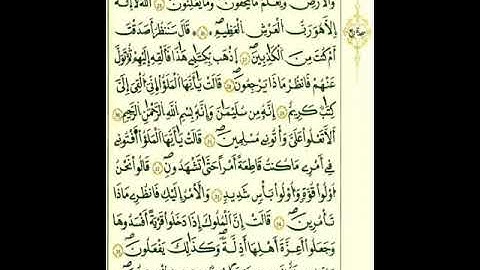 والارض ويعلم ما يخفون وما يعلنون ۝ الله لا اله
الا هو رب العرش العظيم ۝ قال سننظر اصدقت
ام كنت من الكاذبين ۝ اذهب بكتابي هذا فالقه اليهم ثم تول
عنهم فانظر ماذا يرجعون ۝ قالت يا ايها الملؤا اني القي الي
كتاب كريم ۝ انه من سليمان وانه بسم الله الرحمن الرحيم ۝
الا تعلوا علي واتوني مسلمين ۝ قالت يا ايها الملؤا افتوني
في امري ما كنت قاطعة امرا حتى تشهدون ۝ قالوا نحن
اولوا قوة واولوا باس شديد والامر اليك فانظري ماذا
تامرين ۝ قالت ان الملوك اذا دخلوا قرية افسدوها
وجعلوا اعزة اهلها اذلة وكذلك يفعلون ۝